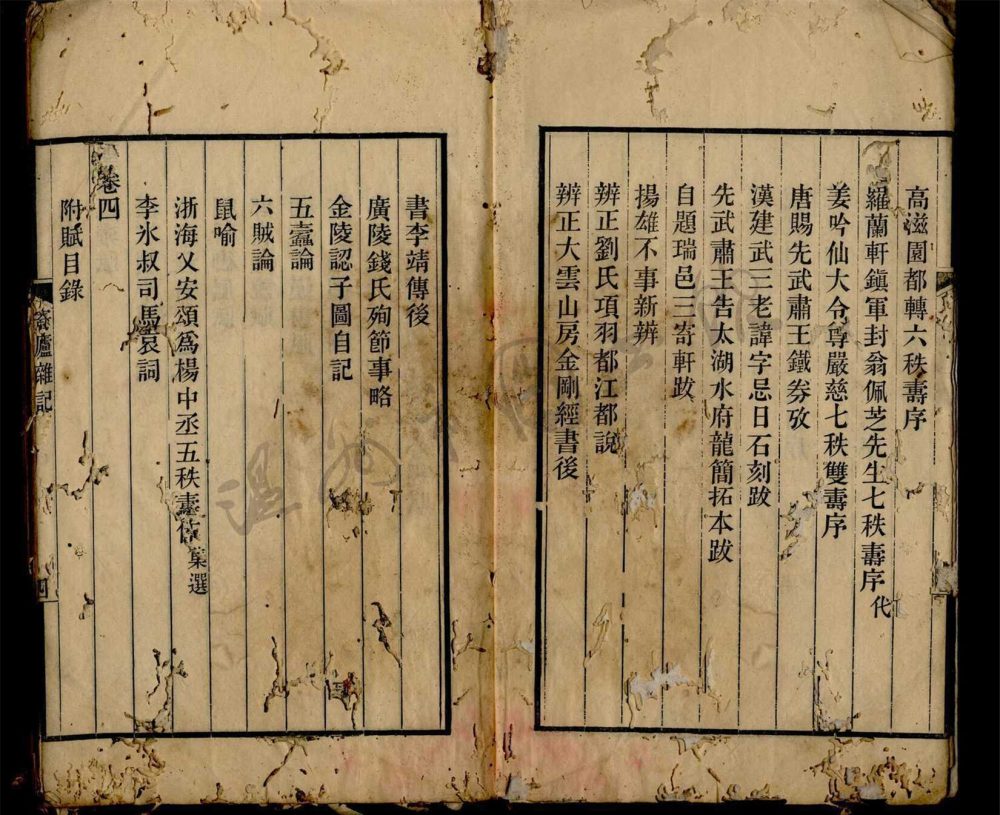 高滋園都轉六秩壽序
羅蘭軒鎭軍封翁佩芝先生七秩壽序代
姜吟仙大令尊嚴慈七秩雙壽序
唐賜先武肅王鐵券攷
漢建武三老諱字忌日石刻跋
先武肅王告太湖水府龍簡拓本跋
自題瑞邑三寄軒跋
揚雄不事新辨
辨正劉氏項羽都江都說
辨正大雲山房金剛經書後
書李靖傳後
廣陵錢氏殉節事略
金陵認子圖自記
五蠧論
六賊論
鼠喻
浙海乂安頌爲楊中丞五秩壽
選
李氷叔司馬哀詞
卷四
附賦目錄
廬雜記
四
溫州市圖